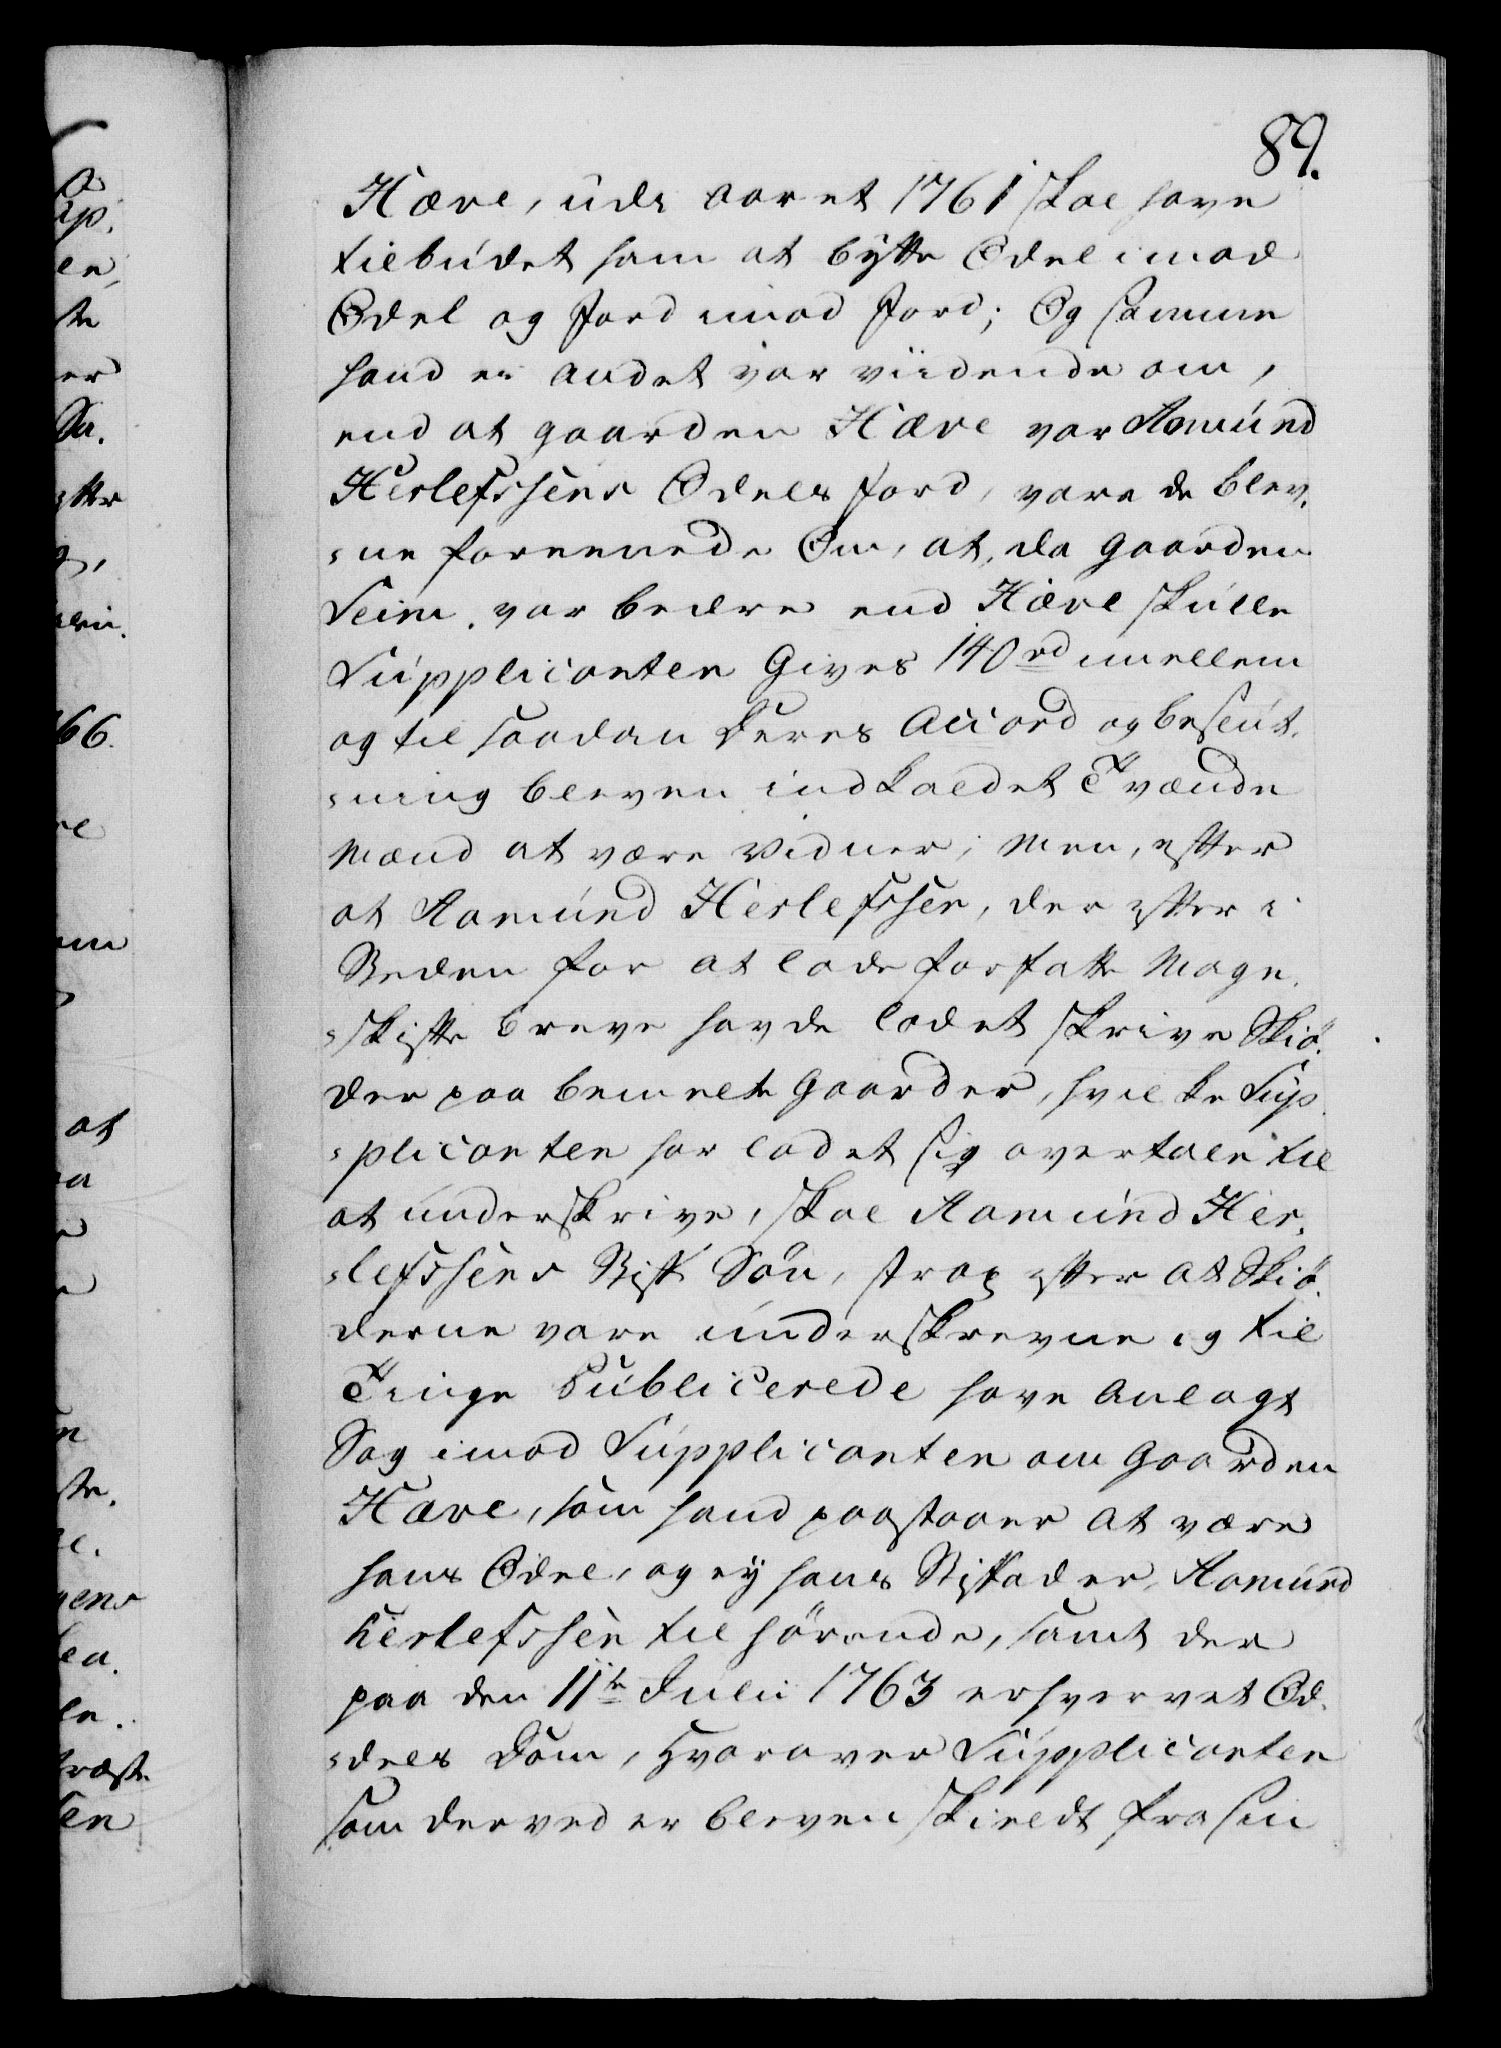 89.
Hæve, udi aaret 1761 skal have
tilbudet ham at bytte Odel imod
Odel og Jord imod Jord; Og somme
hand ei andet var vidende om,
end at gaarden Hæve var Aamund
Herlefssens Odels Jord, vare de blev,
-ne foreenede Om, at, da gaarden
Seim. var bedre end Hæve skulle
Suppliconten Gives 140 rd imellem
og til saadan deres Accord og beslut,
-ning bleven indkaldet Tvænde
Mænd at være Vidner; Men, efter
at Aamund Herlefssen, der efter i
Steden for at lade forfatte Mage,
-skifte breve havde ladet skrive Skiö,
der paa bemelte Gaarder, hvilke Sup,
-plicanten har ladet sig overtale til
at underskrive, skal Aamund Her,
-lefssens Stif Sön, strax efter at Skiö,
derne vare underskrevne og til
Tinge Publicerede have Anlagt
Sag imod Supplicanten om Gaarden
Hæve, som hand paastaaer at være
hans Odel, og ey hans Stiffader, Aamund
Herlefssen tilhörende, samt der
paa den 11te Julii 1763 erhvervet Od,
-dels Dom, Hvorover Supplicanten
som derved er bleven skieldt fra sin